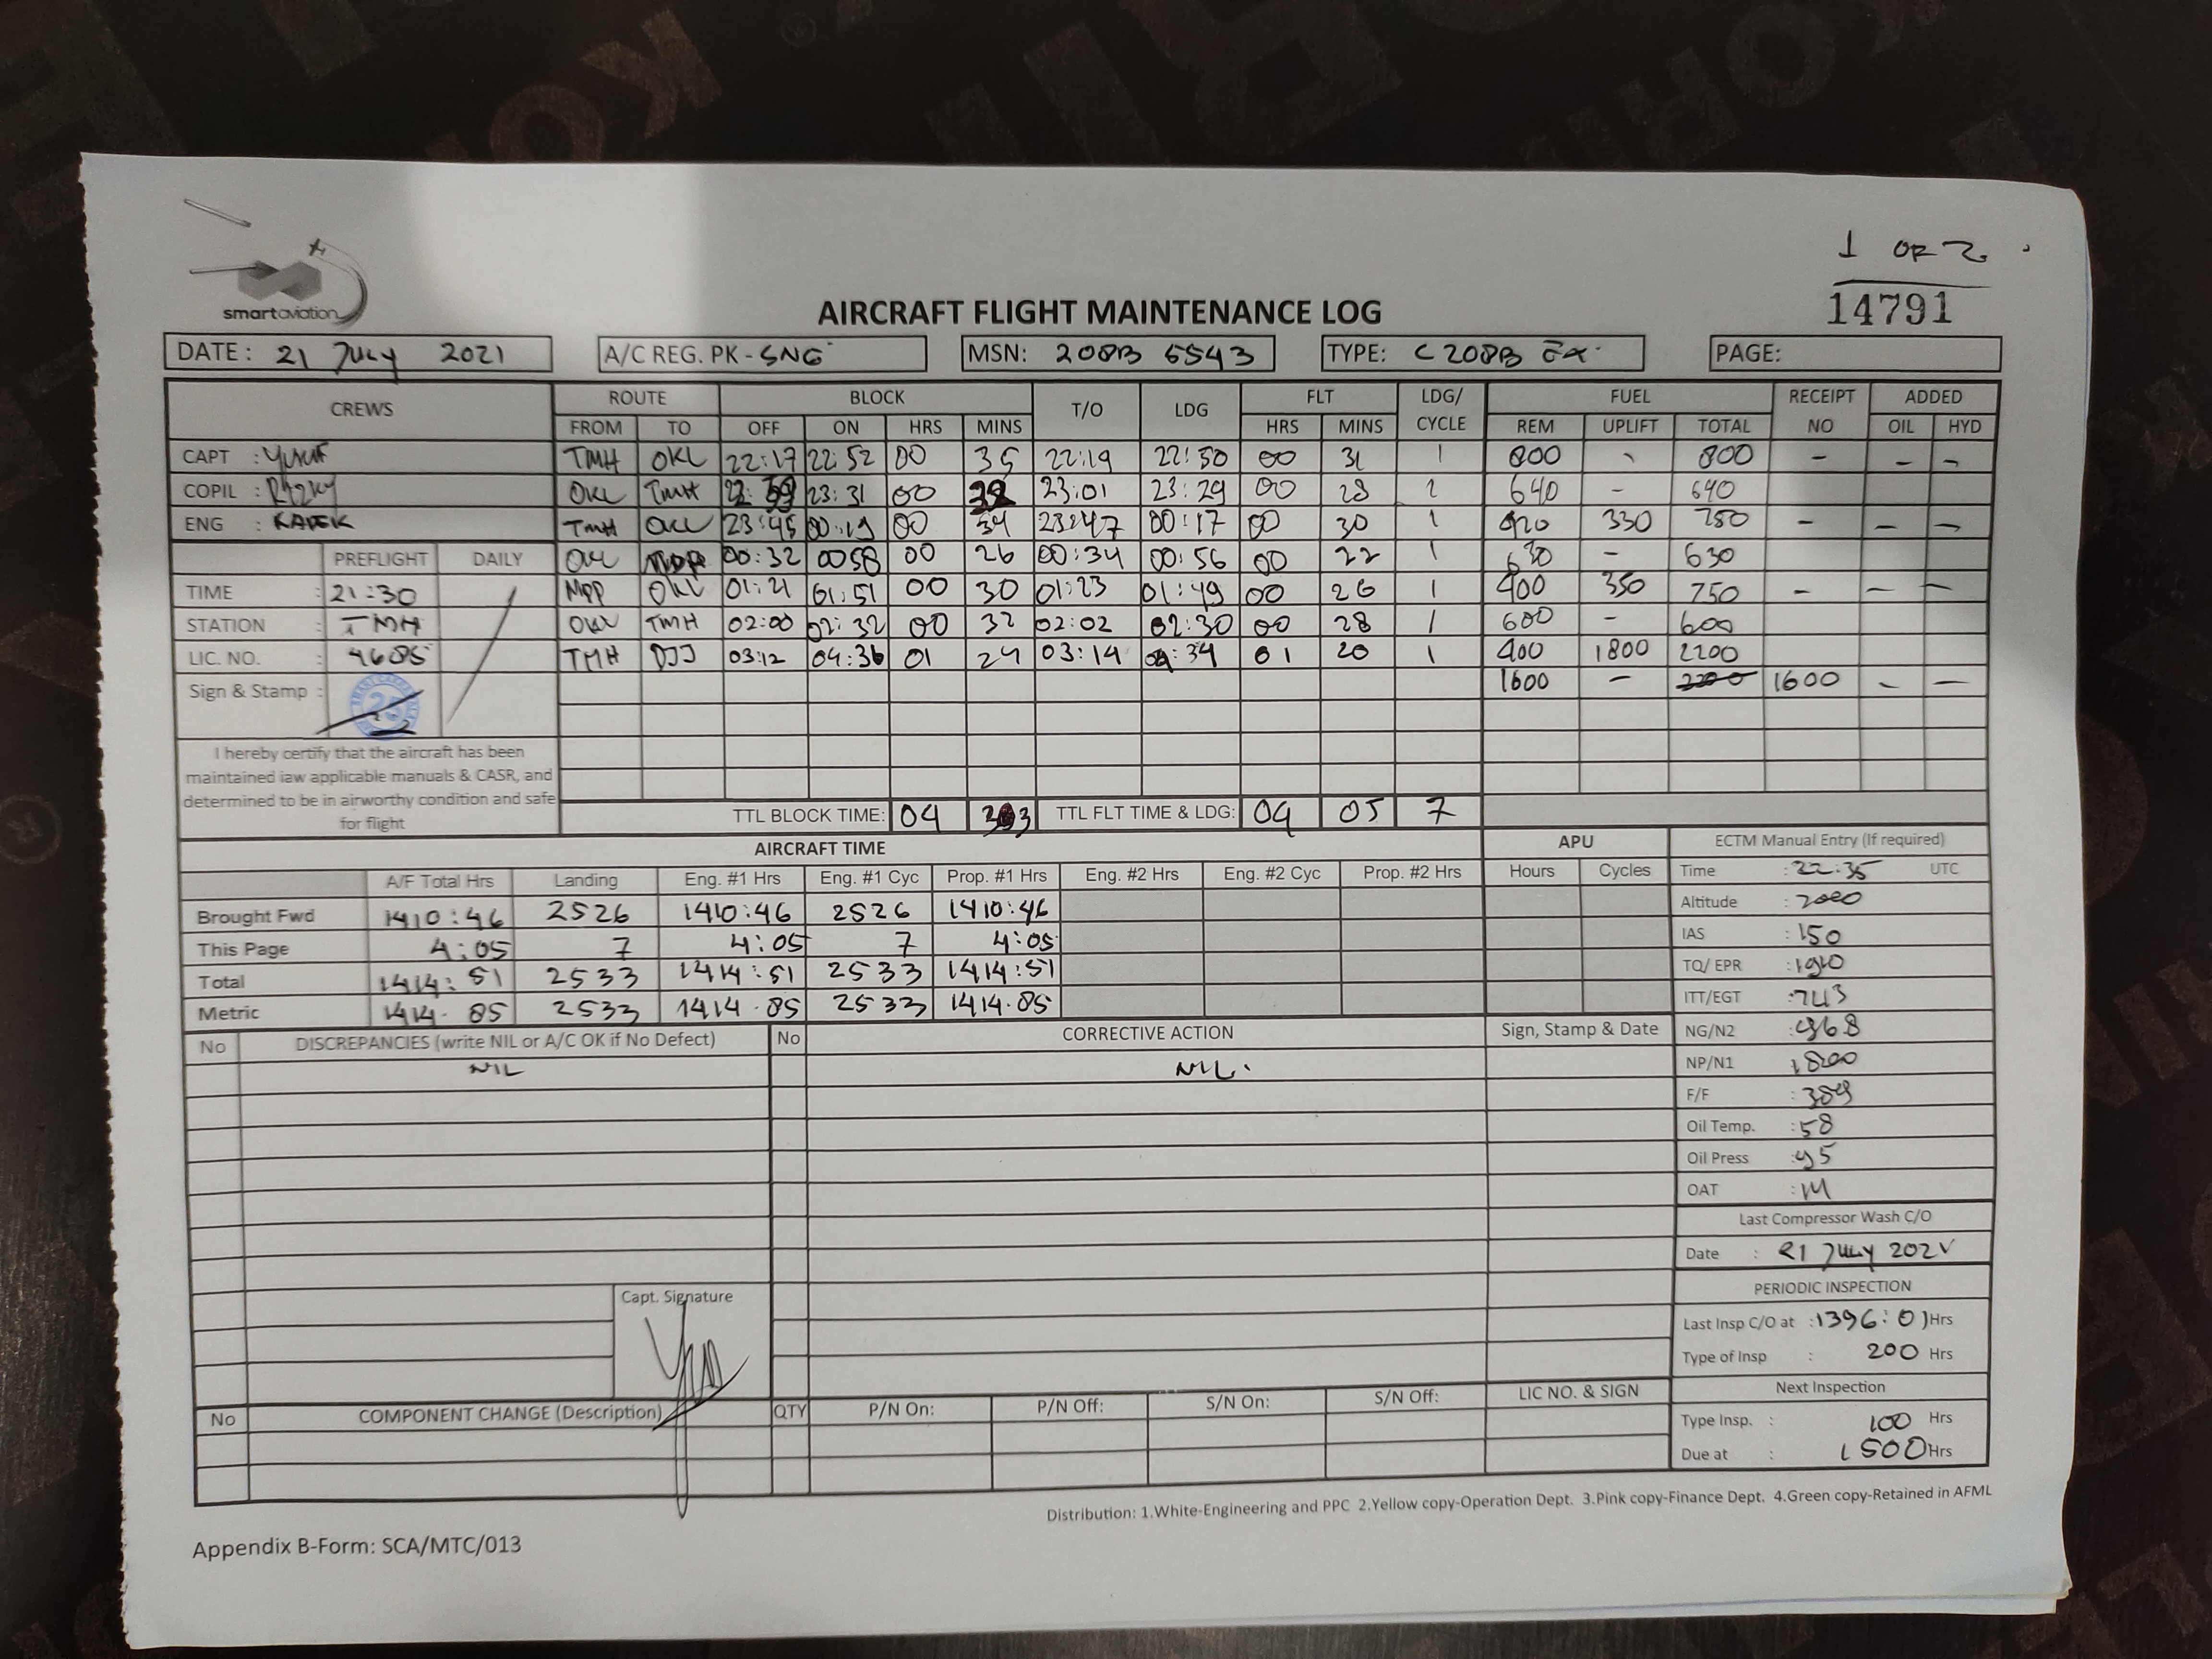 1 OF 2
smartaviation
AIRCRAFT FLIGHT MAINTENANCE LOG
14791
DATE: 21 July 2021 A/C REG. PK - SNG MSN: 208B 5543 TYPE: C208B EX PAGE:
CREWS ROUTE BLOCK T/O LDG FLT LDG/ FUEL RECEIPT ADDED
FROM TO OFF ON HRS MINS HRS MINS CYCLE REM UPLIFT TOTAL NO OIL HYD
CAPT : YUSUF TMH OKL 22:17 22:52 00 35 22:19 22:50 00 31 1 800 - 800 - - -
COPIL : RIZKY OKL TMH 22:59 23:31 00 32 23:01 23:29 00 28 640 - 640
ENG : KADEK TMH OKL 23:45 00:19 00 34 23:47 00:17 00 30 1 420 330 750 - - -
PREFLIGHT DAILY OKL 00:32 0058 00 26 00:34 00:56 00 22 1 630 - 630
TIME : 21:30 MPP OKL 01:21 01:51 00 30 01:23 01:49 00 26 1 400 350 750 - - -
STATION : TMH OKL TMH 02:00 02:32 00 32 02:02 02:30 00 28 1 600 - 600
LIC. NO. : 4685 TMH DJJ 03:12 04:36 01 24 03:14 04:34 01 20 1 400 1800 2200
Sign & Stamp : 1600 - 2200 1600 - -
I hereby certify that the aircraft has been
maintained iaw applicable manuals & CASR, and
determined to be in airworthy condition and safe
for flight
TTL BLOCK TIME: 04 TTL FLT TIME & LDG: 04 05 7
AIRCRAFT TIME APU ECTM Manual Entry (If required)
A/F Total Hrs Landing Eng. #1 Hrs Eng. #1 Cyc Prop. #1 Hrs Eng. #2 Hrs Eng. #2 Cyc Prop. #2 Hrs Hours Cycles Time : 22:35 UTC
Brought Fwd 1410:46 2526 1410:46 2526 1410:46 Altitude : 7000
This Page 4:05 7 4:05 7 4:05 IAS : 150
Total 1414:51 2533 1414:51 2533 1414:51 TQ/ EPR : 1910
Metric 1414.85 2533 1414.85 2533 1414.85 ITT/EGT : 743
No DISCREPANCIES (write NIL or A/C OK if No Defect) No CORRECTIVE ACTION Sign, Stamp & Date NG/N2 : 968
NIL NIL. NP/N1 1800
F/F : 389
Oil Temp. : 58
Oil Press : 95
OAT :
Last Compressor Wash C/O
Date : 21 July 2021
PERIODIC INSPECTION
Capt. Signature
Last Insp C/O at : 1396:01 Hrs
Type of Insp : 200 Hrs
Next Inspection
No COMPONENT CHANGE (Description) QTY P/N On: P/N Off: S/N On: S/N Off: LIC NO. & SIGN
Type Insp. : 100 Hrs
Due at : 1500 Hrs
Distribution: 1.White-Engineering and PPC 2.Yellow copy-Operation Dept. 3.Pink copy-Finance Dept. 4.Green copy-Retained in AFML
Appendix B-Form: SCA/MTC/013